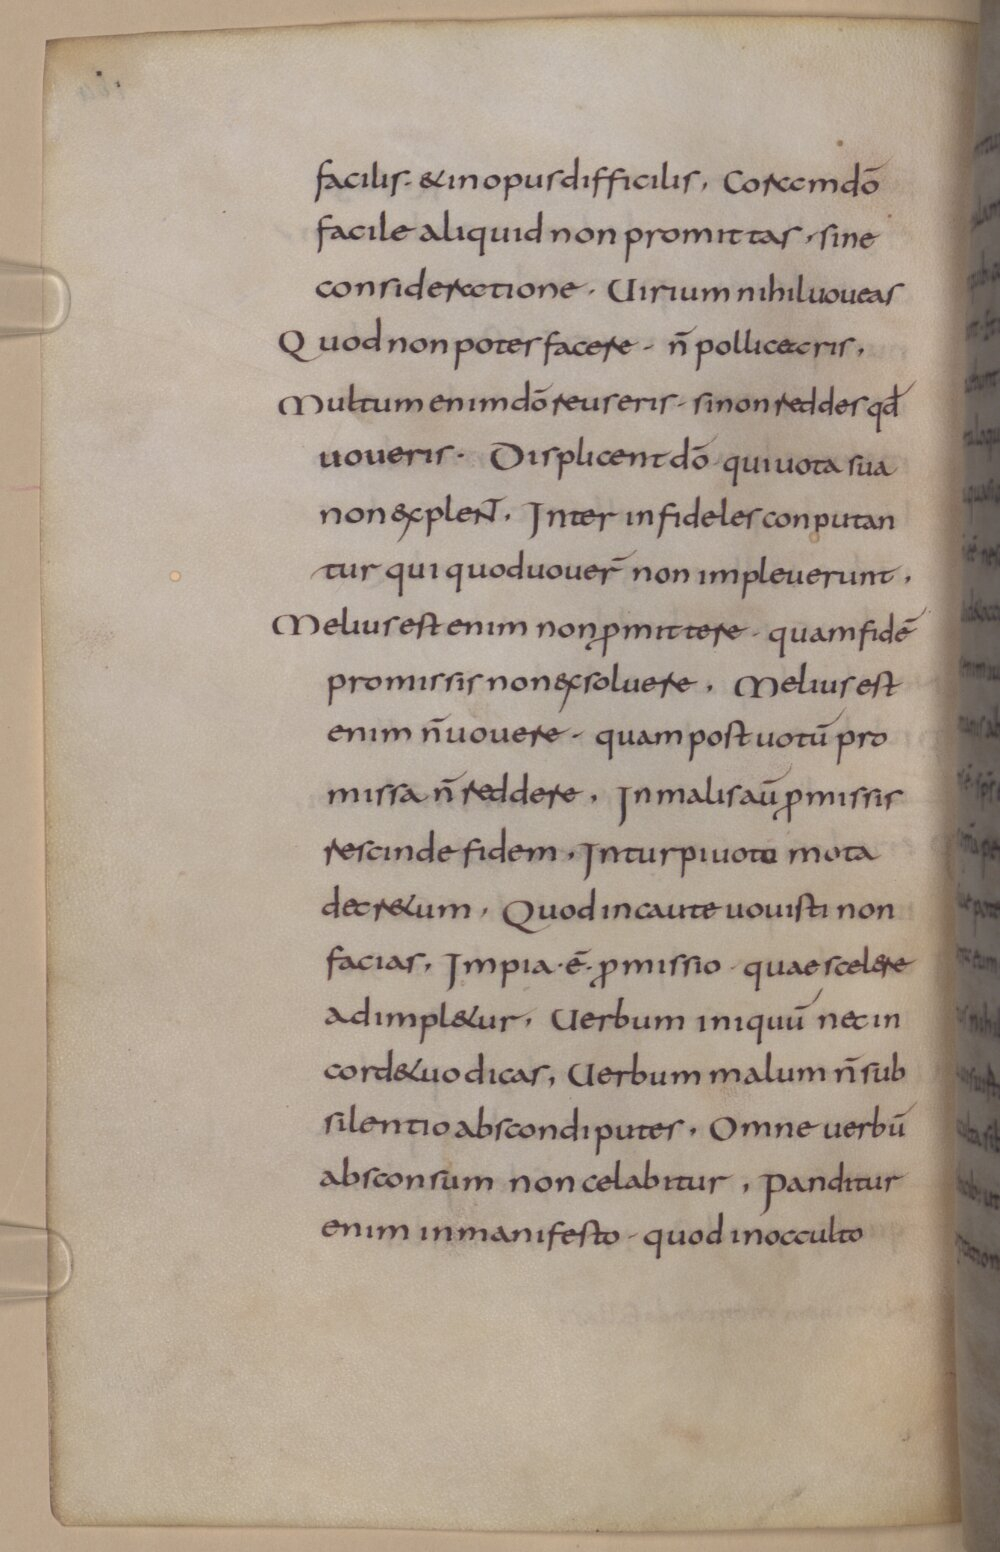 facilis. & in opus difficilis, Coram dō
facile aliquid non promittas, sine
consideratione. Uirium nihil uoueas
Quod non potes facere. n̄ polliceraris,
Multum enim dō reus eris. si non reddes qd̄
uoueris. Displicent dō qui uota sua
non explent, Inter infideles conputan
tur qui quod uouer̄ non impleuerunt,
Melius est enim non ꝓmittere. quam fidē
promissis non exsoluere, Melius est
enim n̄ uouere. quam post uotū pro
missa n̄ reddere, In malis aū ꝓmissis
rescinde fidem, In turpi uoto mota
decr&um, Quod incaute uouisti non
facias, Impia .ē. ꝓmissio quae scelere
adimpl&ur, Uerbum iniquū nec in
corde tuo dicas, Uerbum malum n̄ sub
silentio abscondi putes, Omne uerbū
absconsum non celabitur, Panditur
enim in manifesto. quod in occulto